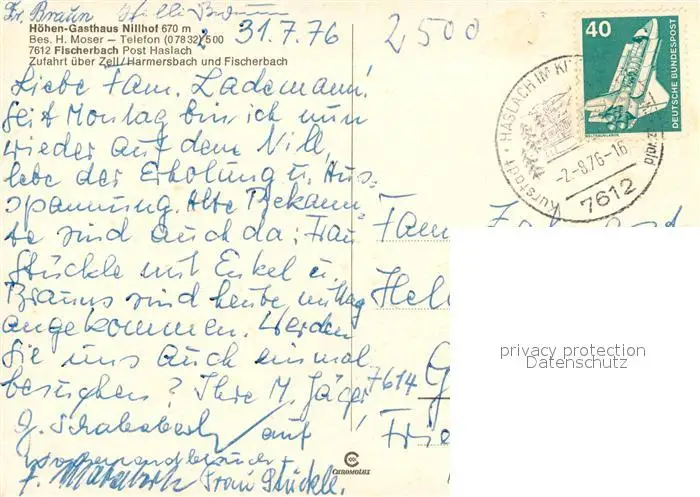 Dr. Braun
Höhen-Gasthaus Nillhof 670 m
Bes. H. Moser — Telefon (07832) 500
7612 Fischerbach Post Haslach
Zufahrt über Zell/Harmersbach und Fischerbach
31.7.76
2500
Liebe Fam. Lademann!
Seit Montag bin ich nun
wieder auf dem Nill,
lebe der Erholung u. Aus-
spannung. Alte Bekann-
te sind auch da: Frau
Stückle mit Enkel u.
Brauns sind heute mittag
angekommen. Werden
Sie uns auch einmal
besuchen? Ihre M. Jäger
auf
Frau Stückle.
CHROMOLUX
40
DEUTSCHE BUNDESPOST
HASLACH IM KI
Kurstadt
-2.-8.76-16
7612
Fam.
Hel
7614
privacy protection
Datenschutz